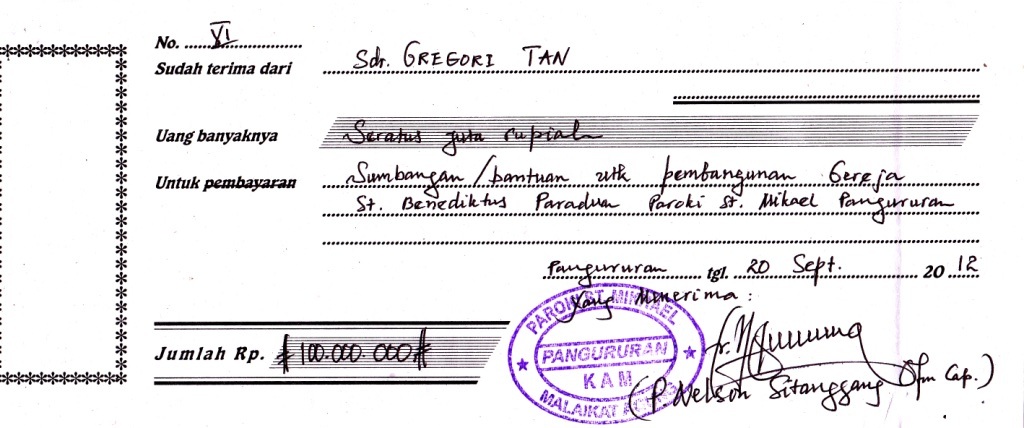 No. XI
Sudah terima dari Sdr. GREGORI TAN
Uang banyaknya Seratus juta rupiah
Untuk pembayaran Sumbangan/bantuan utk pembangunan Gereja
St. Benediktus Paraduan Paroki St. Mikael Pangururan
Pangururan tgl. 20 Sept. 2012
Yang Menerima :
PAROKI ST. MIKHAEL
PANGURURAN
KAM
MALAIKAT
Jumlah Rp. # 100.000.000 #
(P. Nelson Sitanggang Ofm Cap.)